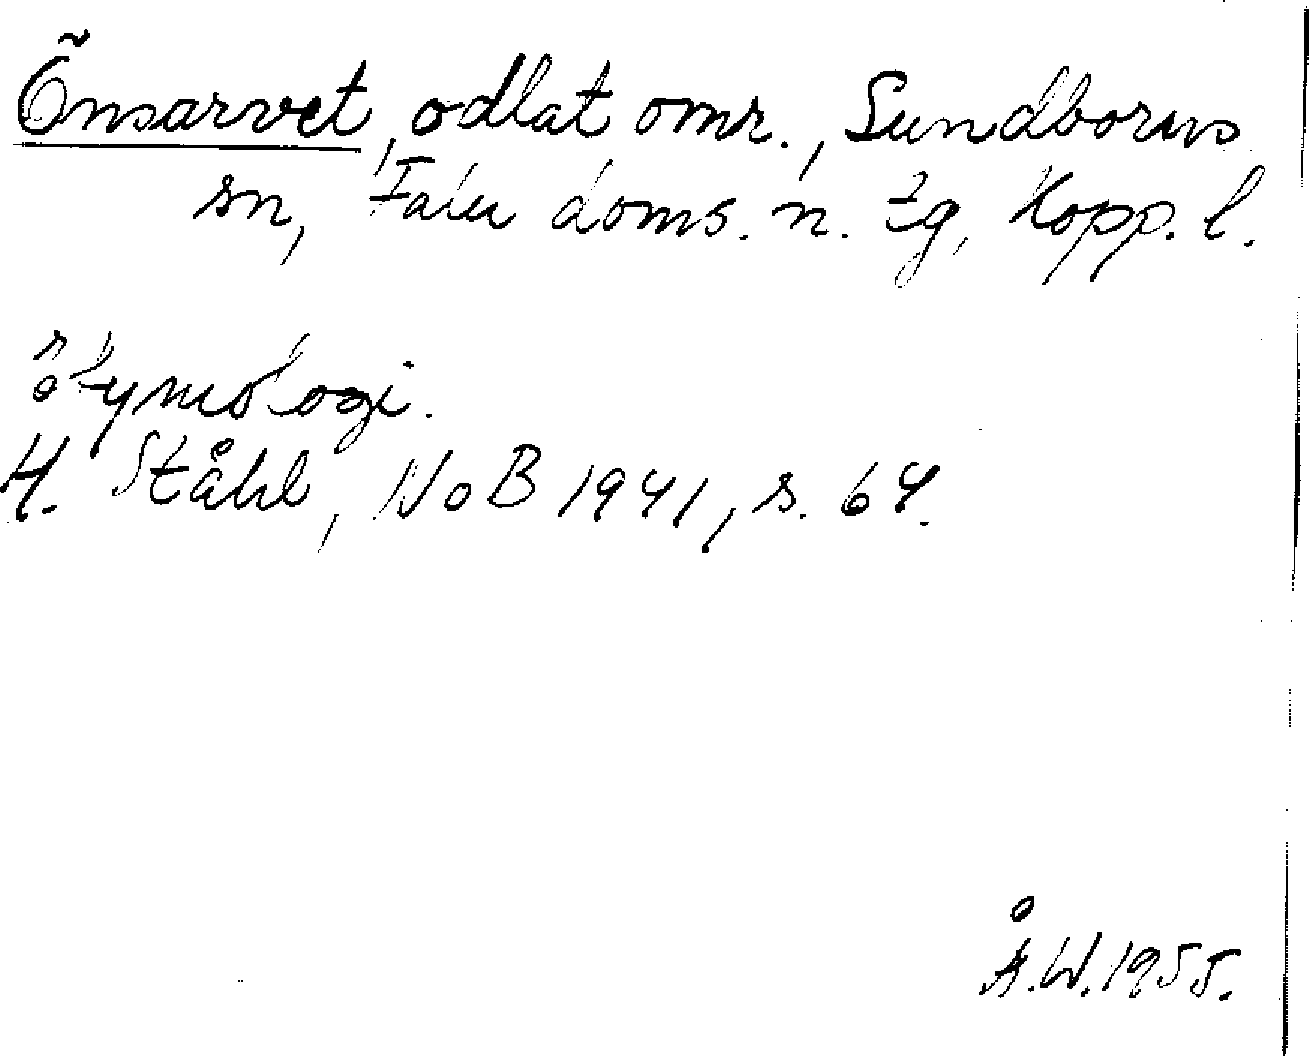 Önsarvet, odlat omr., Sundborns
sn, Falu doms. n. tg, Kopp. l.
Etymologi.
H. Ståhl, NoB 1941, s. 64.
Å.W. 1955.